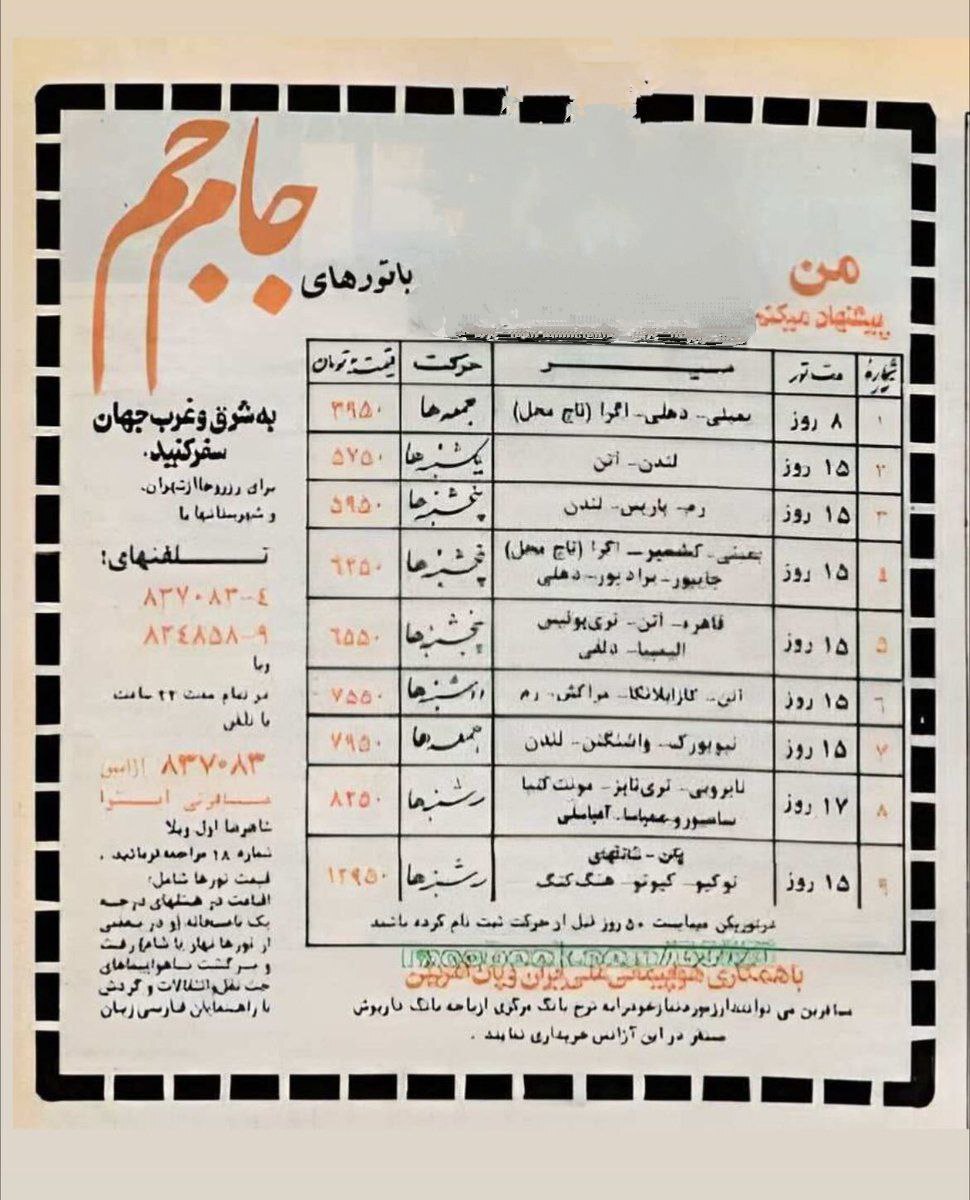 من
پیشنهاد میکنم
با تورهای
جام جم
به شرق و غرب جهان
سفر کنید.
برای رزروها از تهران.
و شهرستانها با
تلفنهای:
۸۳۷۰۸۳-۴
۸۳٤۸۵۸-۹
ویا
در تمام مدت ۲۴ ساعت
با تلفن
۸۳۷۰۸۳ آژانس
مسافرتی
شاهرضا اول ویلا
شماره ۱۸ مراجعه فرمائید .
قیمت تورها شامل:
اقامت در هتلهای درجه
یک باصبحانه (و در بعضی
از تورها نهار یا شام) رفت
و برگشت باهواپیماهای
جت نقل وانتقالات و گردش
با راهنمایان فارسی زبان
شماره مدت تور مسیر حرکت قیمت به تومان
۱ ۸ روز بمبئی- دهلی- اگرا (تاج محل) جمعه ها ۳۹۵۰
۲ ۱۵ روز لندن- آتن یکشنبه ها ۵۷۵۰
۳ ۱۵ روز رم- پاریس- لندن پنجشنبه ها ۵۹۵۰
٤ ۱۵ روز بمبئی- کشمیر- اگرا (تاج محل) پنجشنبه ها ٦۲۵۰
جایپور- دهلی
۵ ۱۵ روز قاهره- آتن- پنجشنبه ها ٦۵۵۰
المپیا- دلفی
٦ ۱۵ روز آتن- کازابلانکا- مراکش- رم ۷۵۵۰
۷ ۱۵ روز نیویورک- واشنگتن- لندن جمعه ها ۷۹۵۰
۸ ۱۷ روز نایروبی- تری تاپز- مونت کنیا ۸۲۵۰
سامبورو- ممباسا- آمباسلی
۹ ۱۵ روز پکن- شانگهای ۱۲۹۵۰
توکیو- کیوتو- هنگ کنگ
در تور پکن میبایست ۵۰ روز قبل از حرکت ثبت نام کرده باشند
با همکاری هواپیمائی ملی ایران و پان امریکن
مسافرین می توانند ارز مورد نیاز خود را به نرخ بانک مرکزی از باجه بانک داریوش
مستقر در این آژانس خریداری نمایند .